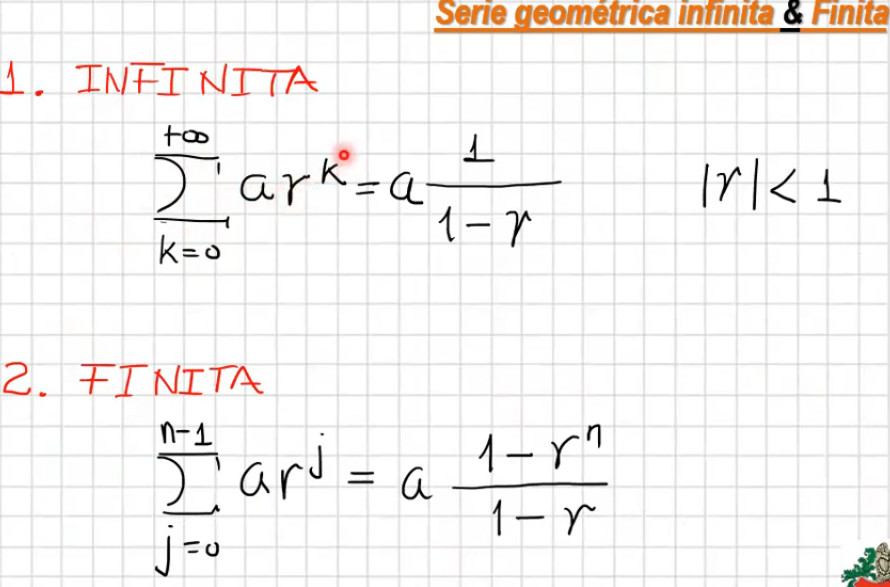 Serie geométrica infinita & Finita
1. INFINITA
+∞
∑ ar^k = a 1/(1-r) |r| < 1
k=0
2. FINITA
n-1
∑ ar^j = a (1-r^n)/(1-r)
j=0